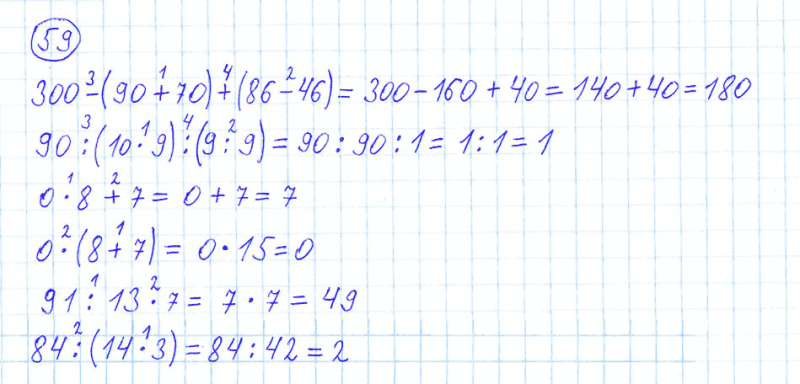 59
300 - (90 + 70) + (86 - 46) = 300 - 160 + 40 = 140 + 40 = 180
90 : (10 · 9) : (9 : 9) = 90 : 90 : 1 = 1 : 1 = 1
0 · 8 + 7 = 0 + 7 = 7
0 · (8 + 7) = 0 · 15 = 0
91 : 13 · 7 = 7 · 7 = 49
84 : (14 · 3) = 84 : 42 = 2